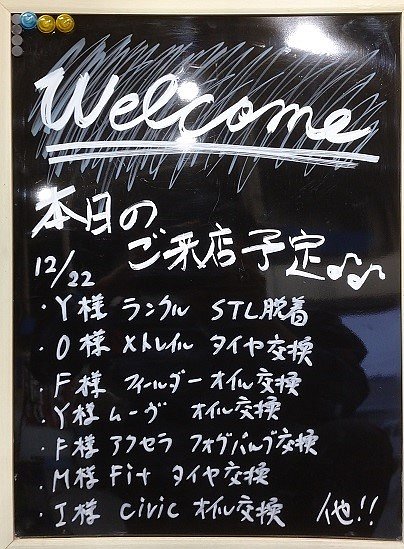 Welcome
本日の
ご来店予定♪♪
12/22
・Y様 ランクル STL脱着
・O様 Xトレイル タイヤ交換
・F様 フィールダー オイル交換
・Y様 ムーヴ オイル交換
・F様 アクセラ フォグバルブ交換
・M様 Fit タイヤ交換
・I様 civic オイル交換 他!!